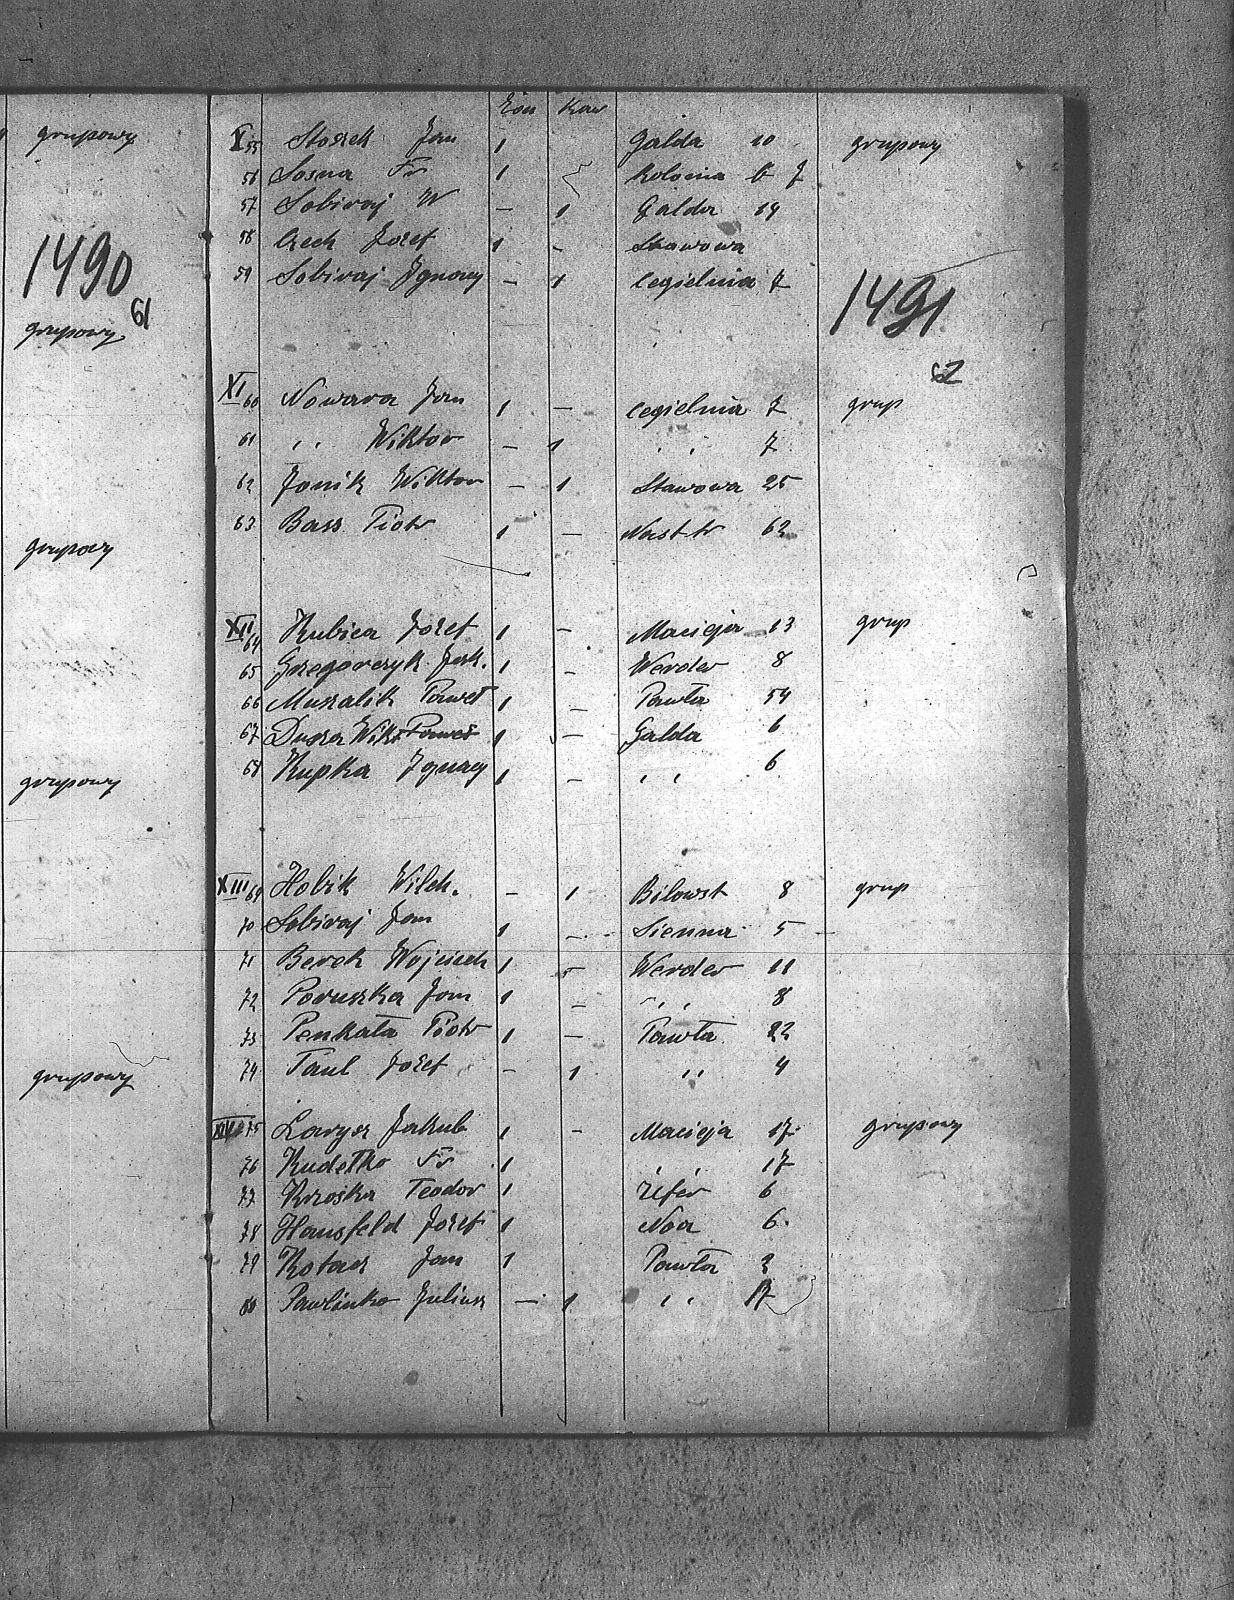 grupowy
1490
61
grupowy
grupowy
grupowy
grupowy
Żon Kaw
X 55 Stoszek Jan 1 Galda 10 grupowy
56 Sosna Fr 1 Kolonia 6 7
57 Sobiraj W – 1 Galda 14
58 Czech Jozef 1 – Stawowa
59 Sobiraj Ignacy – 1 cegielnia 7
1491
62
XI 60 Nowara Jan 1 – cegielnia 7 grup
61 ,, Wiktor – 1 ,, 7
62 Janik Wiktor – 1 Stawowa 25
63 Bass Piotr 1 – Nastr 62
XII 64 Kubica Jozef 1 – Macieja 13 grup
65 Grzegorczyk Jak. 1 – Werder 8
66 Muskalik Paweł 1 – Pawła 54
67 Dusza Wikt 1 – Galda 6
68 Kupka Ignacy 1 – ,, 6
XIII 69 Hobik Wilch. – 1 Bilowst 8 grup
70 Sobiraj Jan 1 – Sienna 5
71 Berek Wojciech 1 – Werder 11
72 Poruszka Jan 1 – ,, 8
73 Penkała Piotr 1 – Pawła 22
74 Paul Jozef – 1 ,, 4
XIV 75 Jakub 1 – Macieja 17 grupowy
76 Kudełko Fr 1 17
77 Krzoska Teodor 1 6
78 Hansfeld Jozef 1 Noa 6
79 Jan 1 Pawła
80 Pawlinka Juliusz – 1 ,, 17